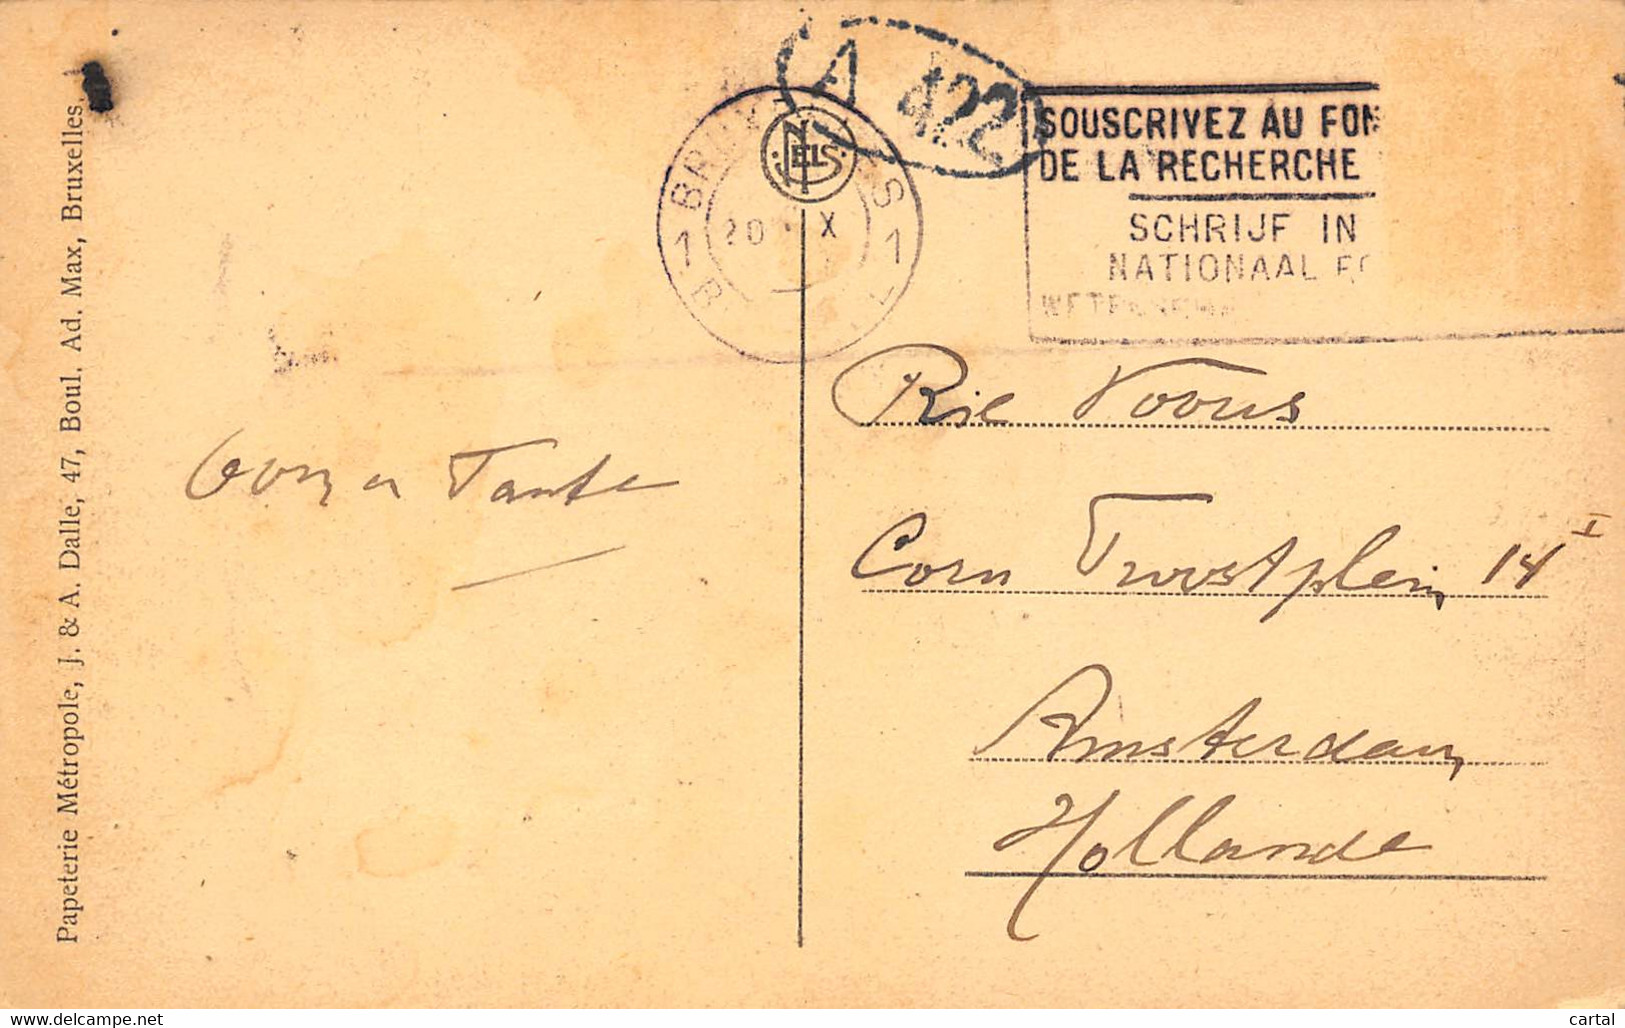 A 422
BRUX S
1 20 X 1
NELS
SOUSCRIVEZ AU FON
DE LA RECHERCHE
SCHRIJF IN
NATIONAAL FO
Papeterie Métropole, J. & A. Dalle, 47, Boul. Ad. Max, Bruxelles.
Tante
Rie Voous
Corn Troostplein 14 I
Amsterdam
Hollande
www.delcampe.net
cartal